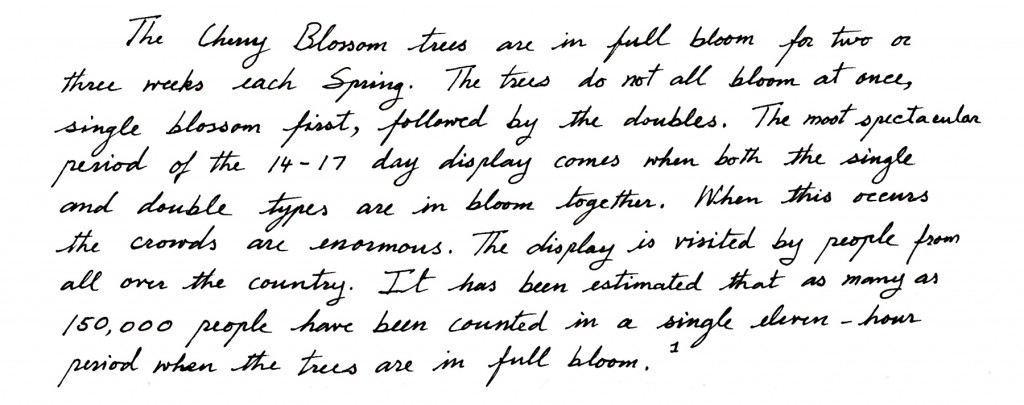 The Cherry Blossom trees are in full bloom for two or
three weeks each Spring. The trees do not all bloom at once,
single blossom first, followed by the doubles. The most spectacular
period of the 14-17 day display comes when both the single
and double types are in bloom together. When this occurs
the crowds are enormous. The display is visited by people from
all over the country. It has been estimated that as many as
150,000 people have been counted in a single eleven-hour
period when the trees are in full bloom.¹